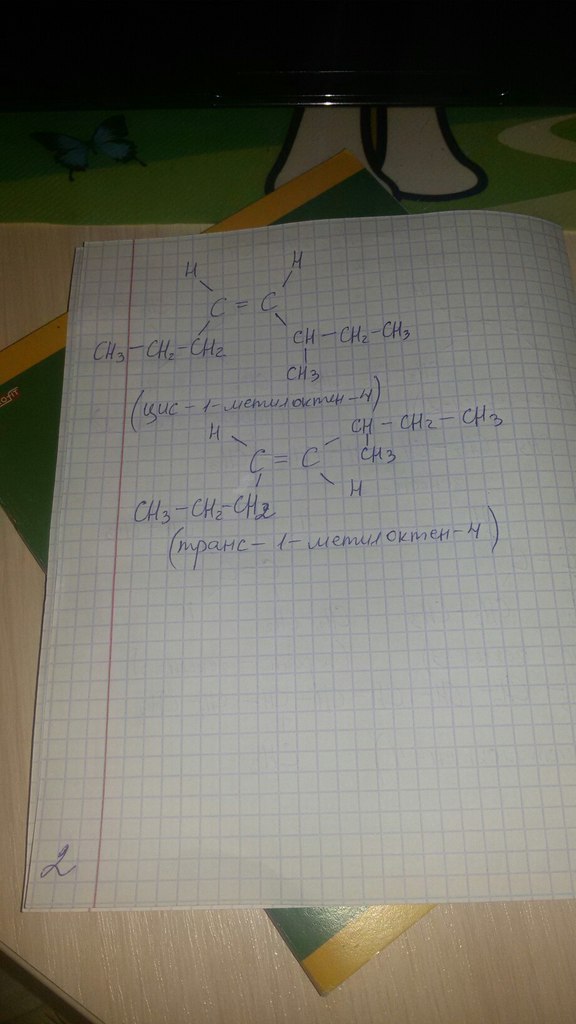 H H
C = C
CH3 - CH2 - CH2 CH - CH2 - CH3
CH3
(цис - 1 - метилоктен - 4)
H CH - CH2 - CH3
C = C CH3
H
CH3 - CH2 - CH2
(транс - 1 - метилоктен - 4)
2